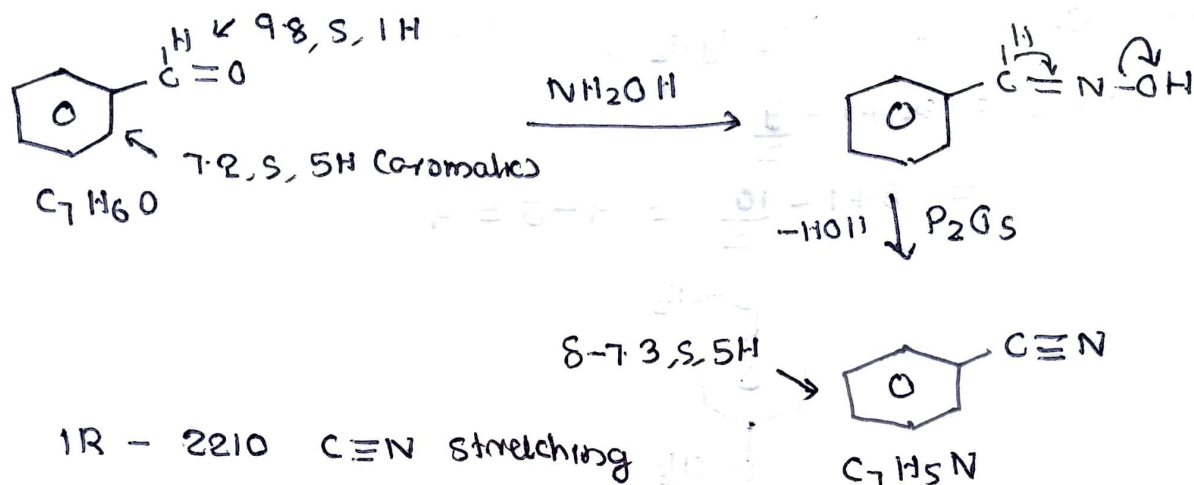 H ↙ 9.8, S, 1H
C=O
NH2OH
H
C=N-OH
7.2, S, 5H (aromatics
C7H6O
-HOH ↓ P2O5
δ-7.3, S, 5H
C≡N
IR - 2210 C≡N stretching
C7H5N